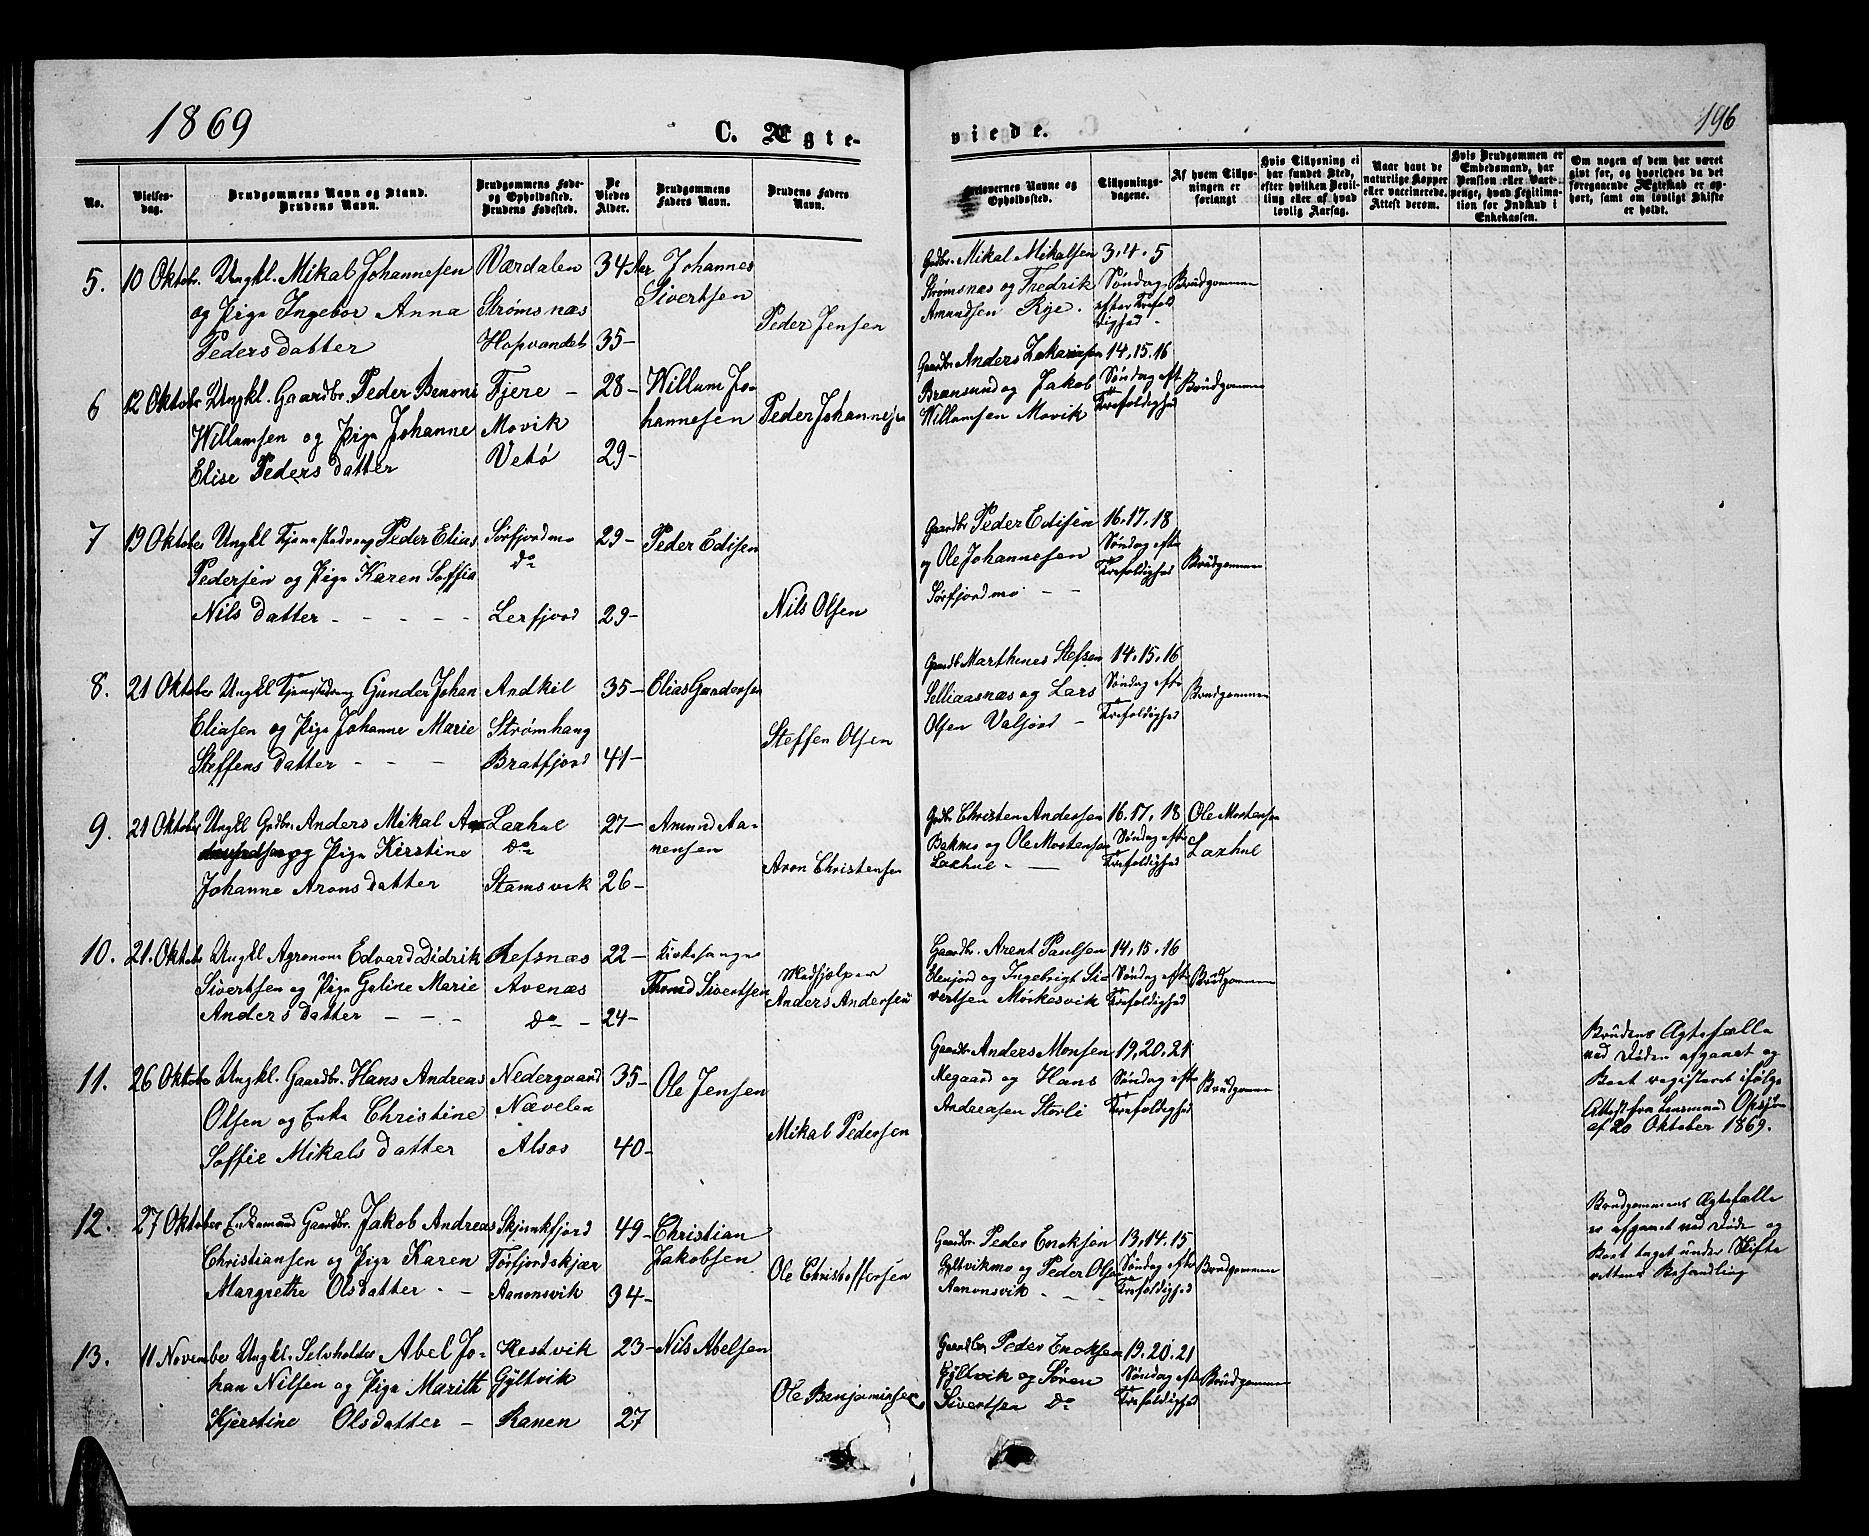 1869
C. Ægte-
viede.
196
No.
Vielses-
dag.
Brudgommens Navn og Stand.
Brudens Navn.
Brudgommens Føde-
og Opholdssted.
Brudens Fødested.
De
Viedes
Alder.
Brudgommens
Faders Navn.
Brudens Faders
Navn.
Forlovernes Navne og
Opholdssted.
Tillysnings-
dagene.
Af hvem Tillys-
ningen er
forlangt
Hvis Tillysning ei
har fundet Sted,
efter hvilken Bevil-
ling eller af hvad
lovlig Aarsag.
Naar havt de
naturlige Kopper
eller vaccinerede.
Attest derom.
Hvis Brudgommen er
Embedsmand, har
Pension eller Vart-
penge, hvad Legitima-
tion for Indskud i
Enkekassen.
Om nogen af dem har været
gift før, og hvorledes da det
foregaaende Ægteskab er op-
hørt, samt om lovligt Skifte
er holdt.
5. 10 Oktobr. Ungkl. Mikal Johannesen
og Pige Ingebor Anna
Pedersdatter
Værdalen
Strømsnæs
Hopvandet
34 Aar
35-
Johannes
Sivertsen
Peder Jensen
Gdbr. Mikal Mikalsen
Strømsnæs og Fredrik
Amundsen Rye.
3, 4, 5
Søndag
efter Trefol
dighed
Brudgommen
6 12 Oktobr Ungkl. Gaardbr. Peder Benoni
Willumsen og Pige Johanne
Elise Pedersdatter
Fjere -
Movik
Vetø
28-
29-
Willum Jo-
hannesen
Peder Johannesen
Gaardbr Anders Zakariasen
Brænsund og Jakob
Willumsen Movik
14, 15, 16
Søndag eft
Trefoldighed
Brudgommen
7 19 Oktober Ungkl Tjenestedreng Peder Elias
Pedersen og Pige Karen Soffia
Nilsdatter - - - - -
Sørfjordmo
do
Lerfjord
29-
29-
Peder Edisen
Nils Olsen
Gaardbr Peder Edisen
og Ole Johannesen
Sørfjordmo - -
16, 17, 18
Søndag efte
Trefoldighed
Brudgommen
8. 21 Oktober Ungkl Tjenestedreng Gunder Johan
Eliasen og Pige Johanne Marie
Steffensdatter - - -
Andkil
Strømhaug
Bratfjord
35-
41-
Elias Gundersen
Steffen Olsen
Gaardb Marthenes Stefsen
Selliaasnæs og Lars
Olsen Valfjord -
14, 15, 16
Søndag efte
Trefoldighed
Brudgommen
9. 21 Oktober Ungkl Gdbr. Anders Mikal
og Pige Kirstine
Johanne Aronsdatter
Laxhul
do
Stamsvik
27-
26-
Amund Aa-
nensen
Aron Christensen
Gdbr Christen Andersen
Bakmo og Ole Mortensen
Laxhul -
16, 17, 18
Søndag efte
Trefoldighed
Ole Mortensen
Laxhul
10. 21. Oktobr Ungkl Agronom Edvard Didrik
Sivertsen og Pige Galine Marie
Andersdatter - - -
Refsnæs
Avenæs
do -
22-
24-
Kirkesanger
Thomd Sivertsen
Medhjælper
Anders Andersen
Gaardbr. Arent Paulsen
Elenjord og Ingebrigt Sie
vertsen Mørkesvik
14, 15, 16
Søndag efte
Trefoldighed
Brudgommen
11. 26 Oktober Ungkl. Gaardbr. Hans Andreas
Olsen og Enke Christine
Soffie Mikalsdatter
Nedergaard
Nævelen
Alsos
35-
40-
Ole Jensen
Mikal Pedersen
Gaardbr Anders Monsen
Megaard og Hans
Andreasen Storli
19, 20, 21
Søndag efte
Trefoldighed
Brudgommen
Brudens Ægtefælle
ved Døden afgaaet og
Boet registeret ifølge
Attest fra Lensmand
af 20 Oktober 1869.
12. 27 Oktober Enkemand Gaardbr. Jakob Andreas
Christiansen og Pige Karen
Margrethe Olsdatter - -
Skjunkfjord
Tørfjordskjær
Aanonsvik
49-
34-
Christian
Jakobsen
Ole Christoffersen
Gaardbr. Peder Enoksen
Gyltvikmo og Peder Olsen
Aanonsvik - - -
13, 14, 15
Søndag efte
Trefoldighed
Brudgommen
Brudgommens Ægtefælle
er afgaaet ved Døde og
Boet taget under Skifte
rettens Behandling
13. 11 November Ungkl. Selvholder Abel Jo-
han Nilsen og Pige Marith
Kjerstine Olsdatter -
Hestvik
Gyltvik
Ranen
23-
27
Nils Abelsen
Ole Benjaminsen
Gaardbr Peder Enoksen
Gyltvik og Søren
Sivertsen do
19, 20, 21
Søndag efte
Trefoldighed
Brudgommen